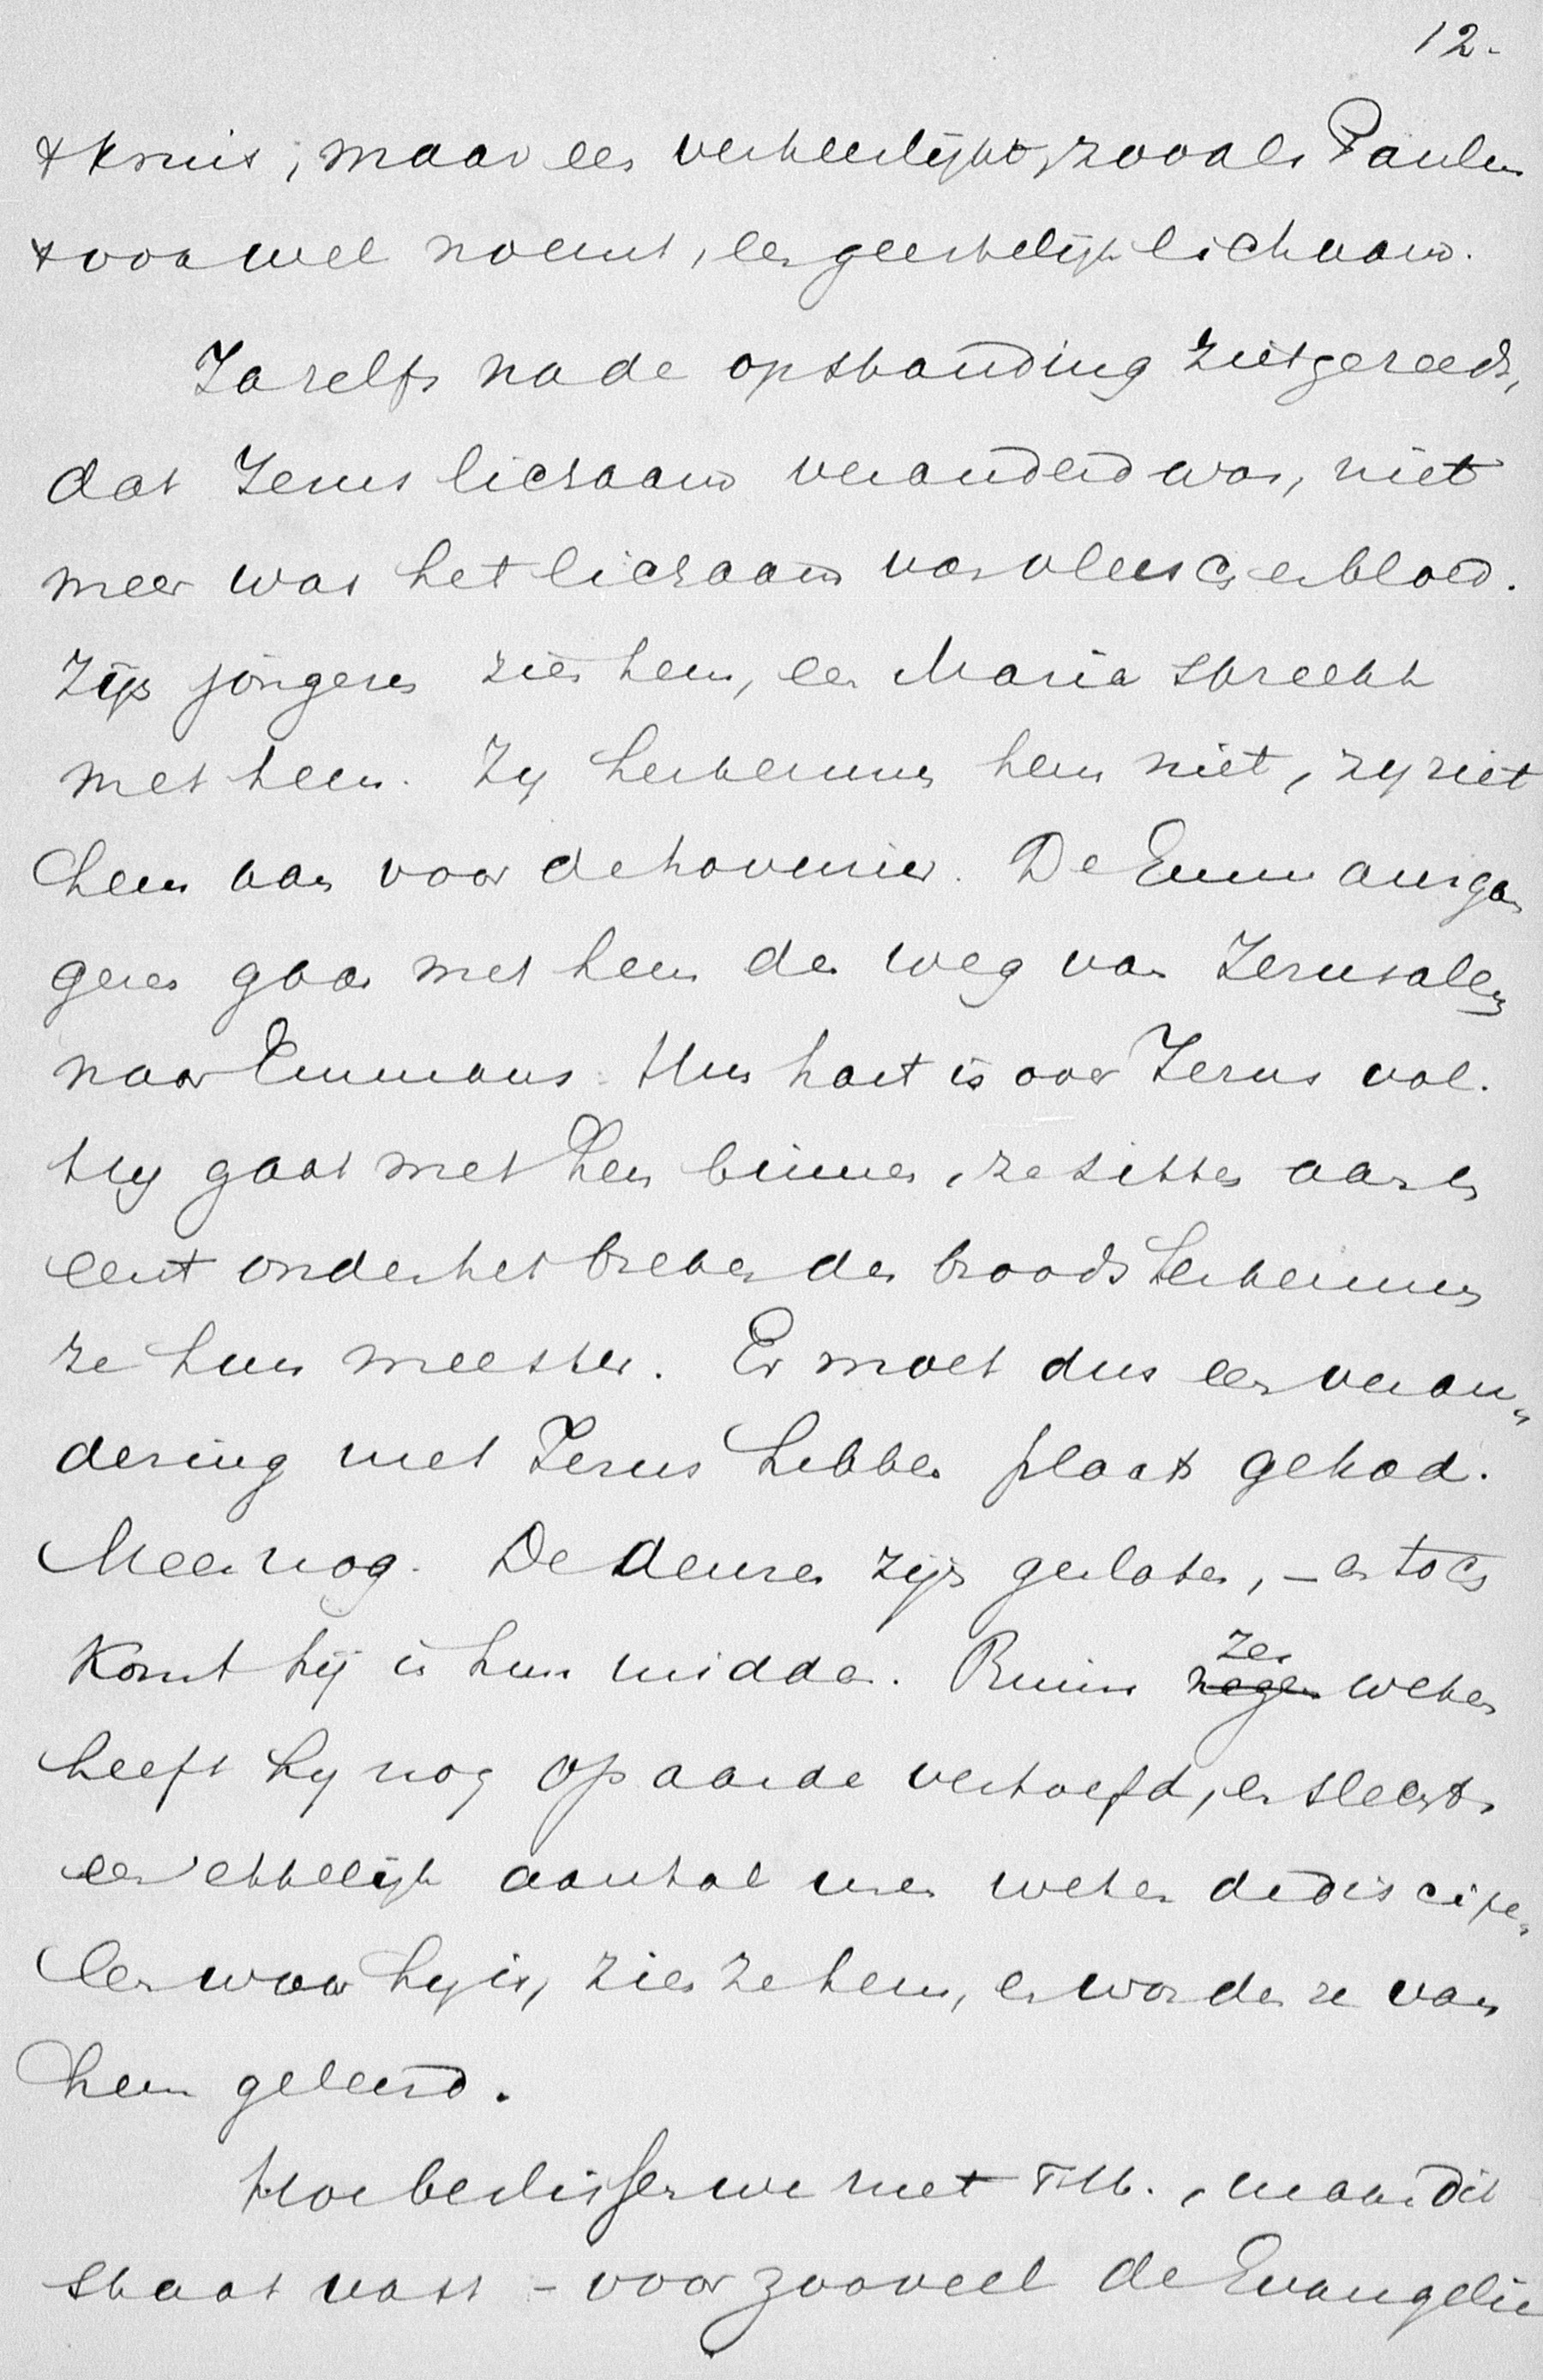 12.
't kruis, maar een verheerlijkt, zooals Paulus
't ook wel noemt, een geestelijk lichaam.
Ja zelfs na de opstanding ziet ge reeds,
dat Jezus lichaam veranderd was, niet
meer was het lichaam van vleesch en bloed.
Zijn jongeren zien hem, en Maria spreekt
met hem. Zij herkennen hem niet, zij ziet
hem aan voor de hovenier. De Emmausgan
gers gaan met hem den weg van Jeruzalem
naar Emmaus. Hun hart is van Jezus vol.
Hij gaat met hen binnen, ze zitten aan en
eerst onder het breken des broods herkennen
ze hun meester. Er moet dus een veran„
dering met Jezus hebben plaats gehad.
Meer nog. De deuren zijn gesloten, – en toch
komt hij in hun midden. Ruim negen zes weken
heeft hij nog op aarde vertoefd, en slechts
een ettelijk aantal uren weten de discipe„
len waar hij is, zien ze hem, en worden ze van
hem geleerd.
Hoe beslissen we niet M., maar dit
staat vast – voor zooveel de Evangelie